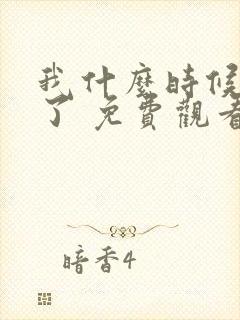 我什麼時候
了 免費觀看
暗香4